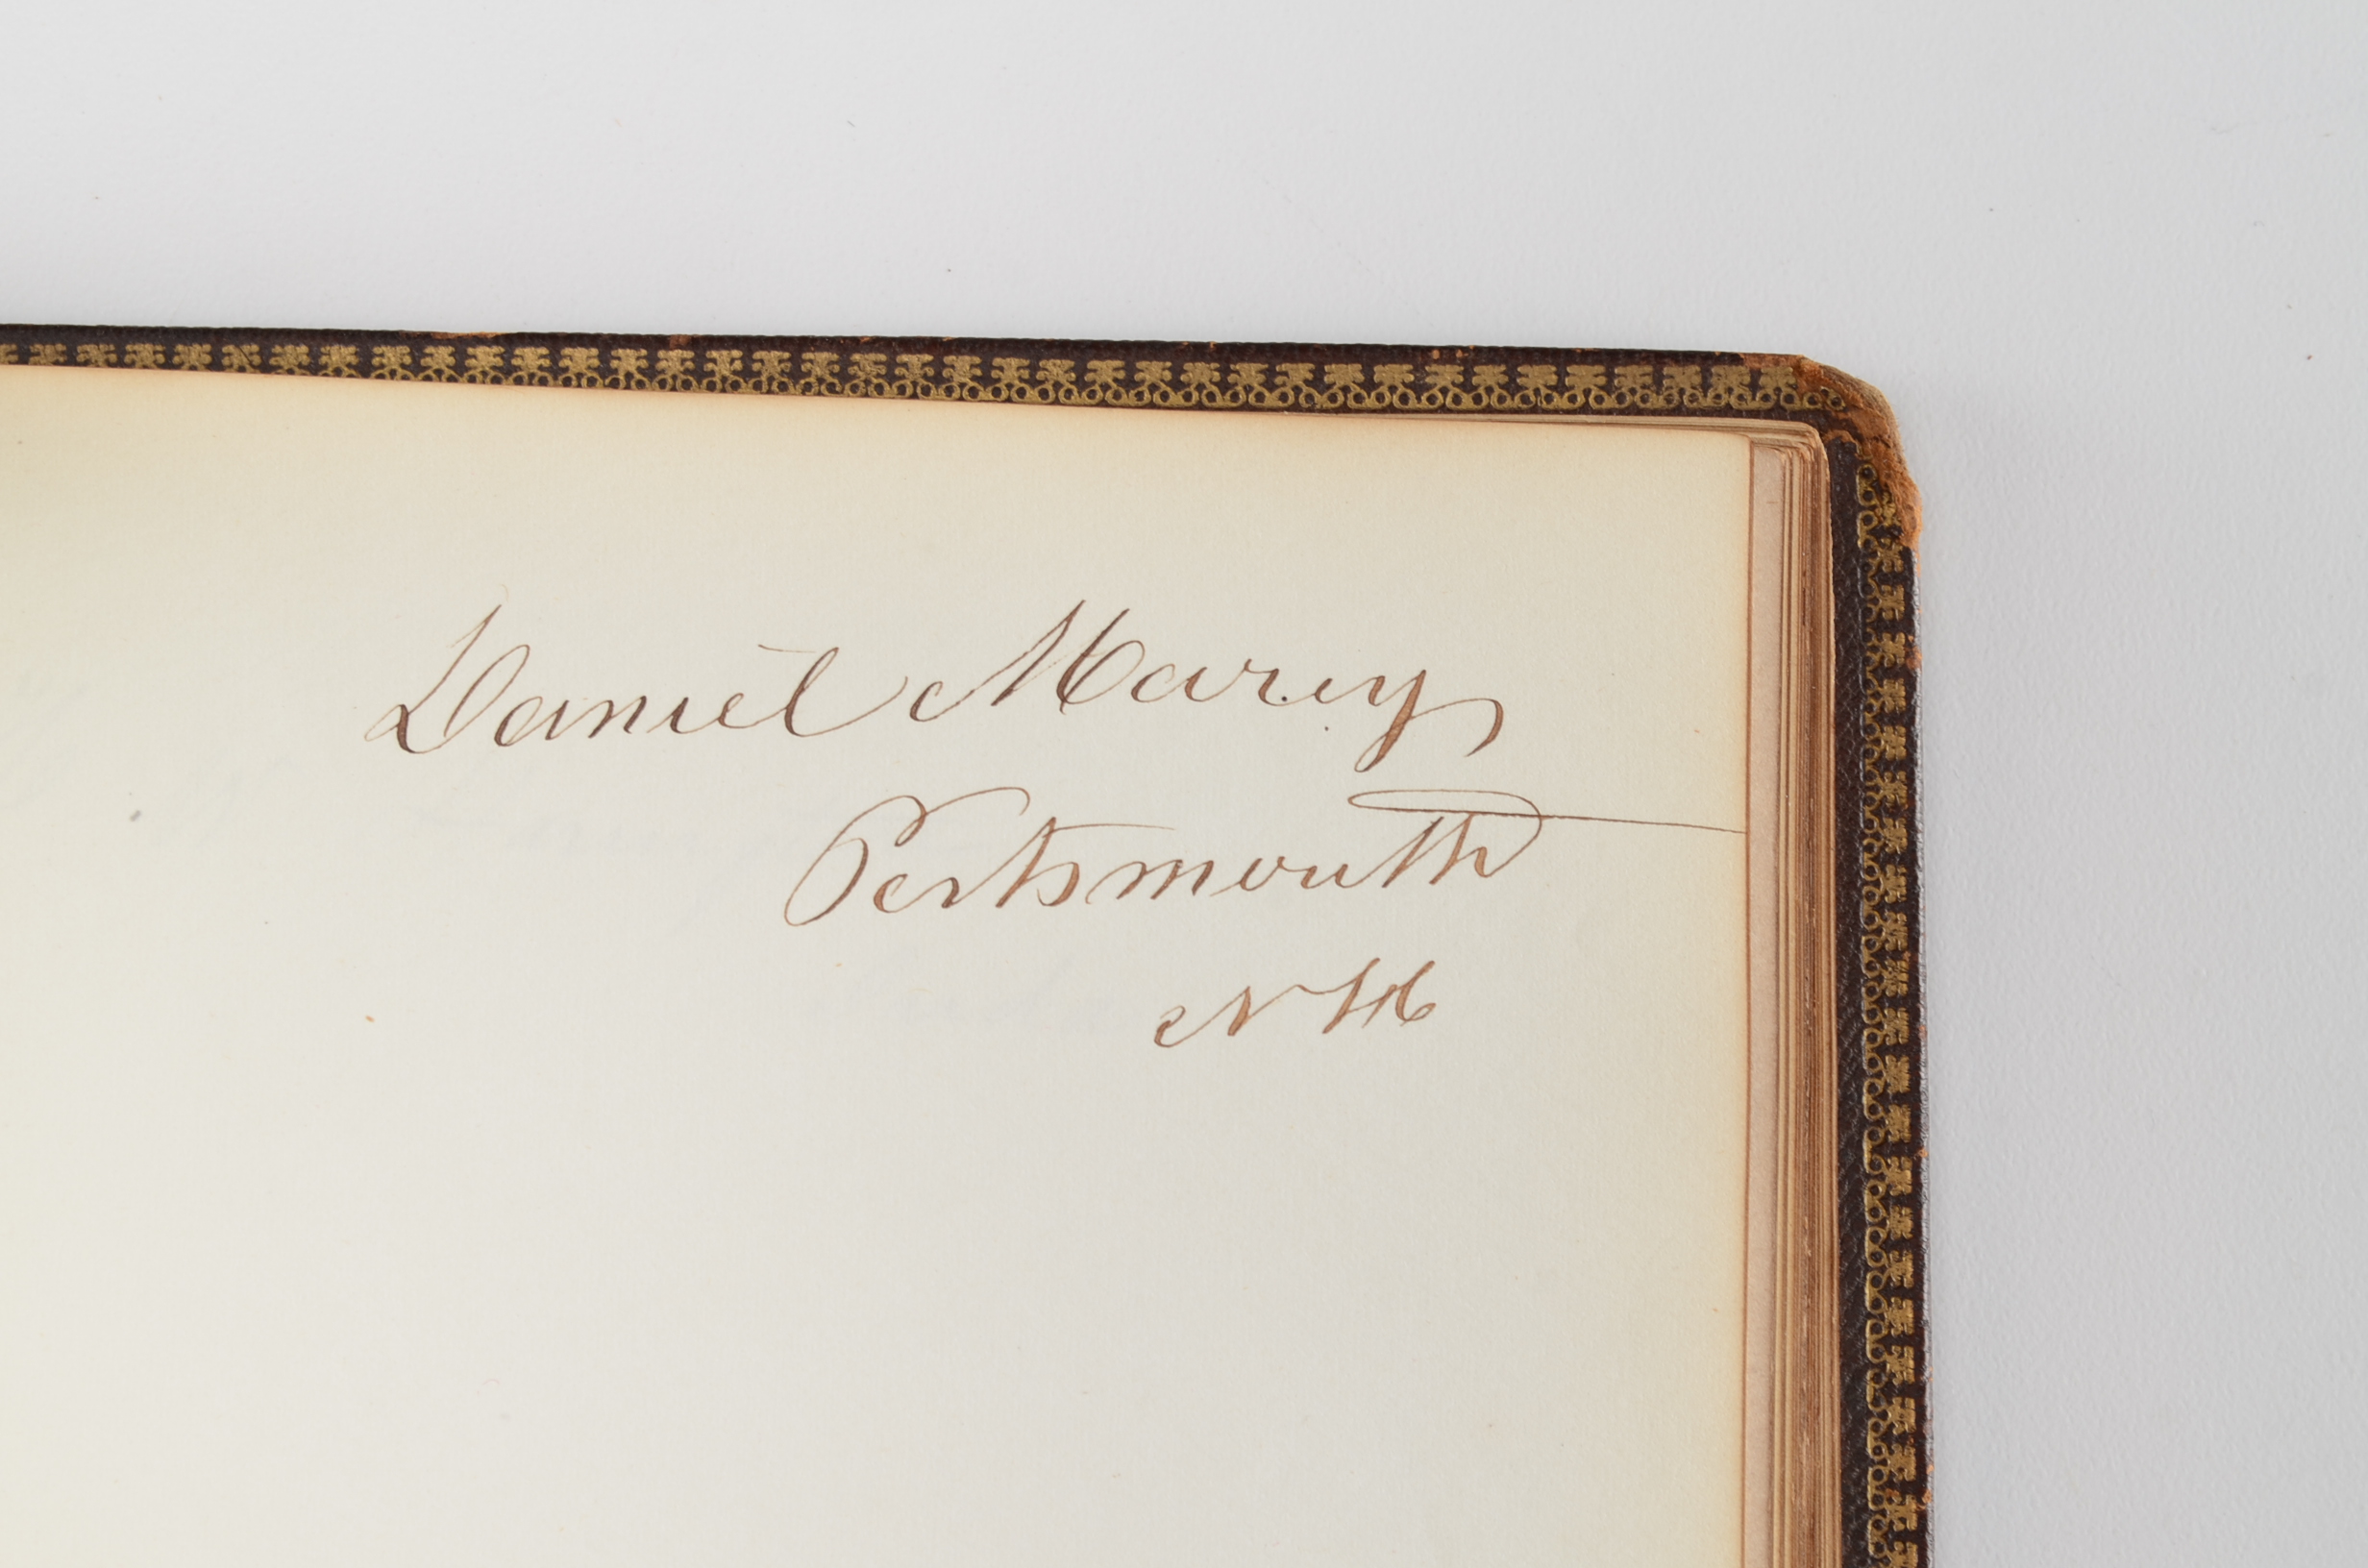 Daniel Marcy
Portsmouth
NH